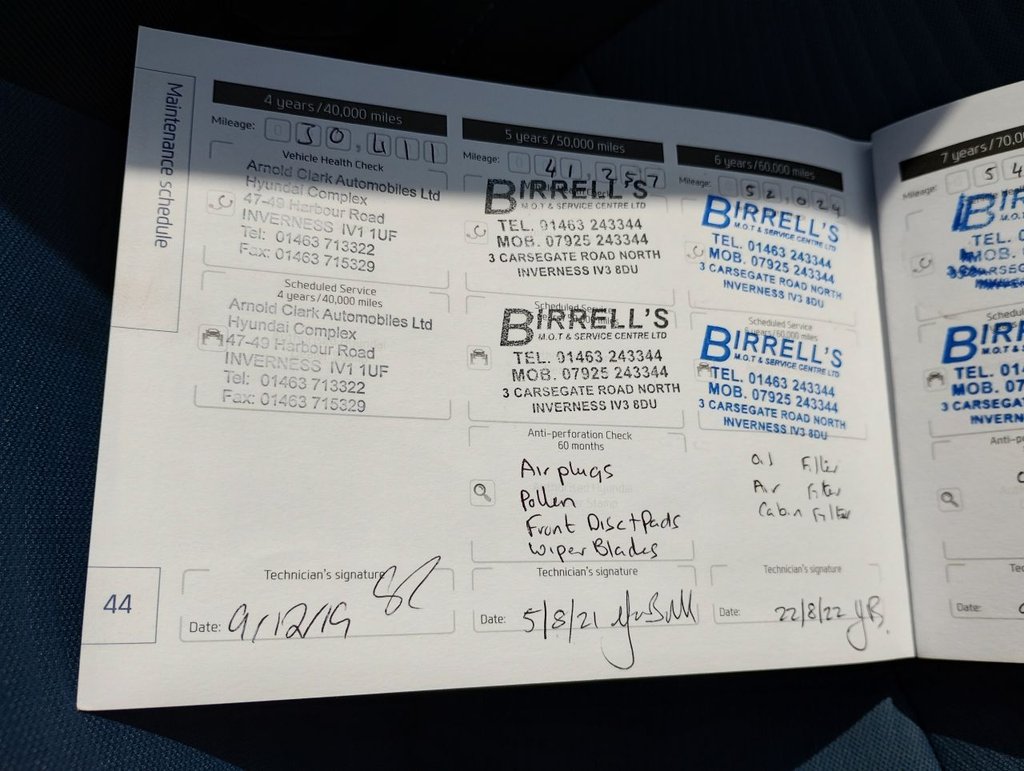 Maintenance schedule
44
4 years/40,000 miles
Mileage: 030,411
Vehicle Health Check
Arnold Clark Automobiles Ltd
Hyundai Complex
47-49 Harbour Road
INVERNESS IV1 1UF
Tel: 01463 713322
Fax: 01463 715329
Scheduled Service
4 years/40,000 miles
Arnold Clark Automobiles Ltd
Hyundai Complex
47-49 Harbour Road
INVERNESS IV1 1UF
Tel: 01463 713322
Fax: 01463 715329
Technician's signature
Date: 9/12/19
5 years/50,000 miles
Mileage: 041,257
BIRRELL'S
M.O.T & SERVICE CENTRE LTD
TEL. 01463 243344
MOB. 07925 243344
3 CARSEGATE ROAD NORTH
INVERNESS IV3 8DU
Scheduled Service
BIRRELL'S
M.O.T & SERVICE CENTRE LTD
TEL. 01463 243344
MOB. 07925 243344
3 CARSEGATE ROAD NORTH
INVERNESS IV3 8DU
Anti-perforation Check
60 months
Air plugs
Pollen
Front Disc+Pads
Wiper Blades
Technician's signature
Date: 5/8/21
6 years/60,000 miles
Mileage: 052,024
BIRRELL'S
M.O.T & SERVICE CENTRE LTD
TEL. 01463 243344
MOB. 07925 243344
3 CARSEGATE ROAD NORTH
INVERNESS IV3 8DU
Scheduled Service
6 years/60,000 miles
BIRRELL'S
M.O.T & SERVICE CENTRE LTD
TEL. 01463 243344
MOB. 07925 243344
3 CARSEGATE ROAD NORTH
INVERNESS IV3 8DU
Oil Filter
Air Filter
Cabin Filter
Technician's signature
Date: 22/8/22
7 years/70,0
Mileage: 054
BIR
M.O.
TEL. 0
MOB.
CARSEG
INVE
Schedu
BIRR
M.O.T &
TEL. 01
MOB. 07
3 CARSEGA
INVERN
Anti-p
Te
Date: